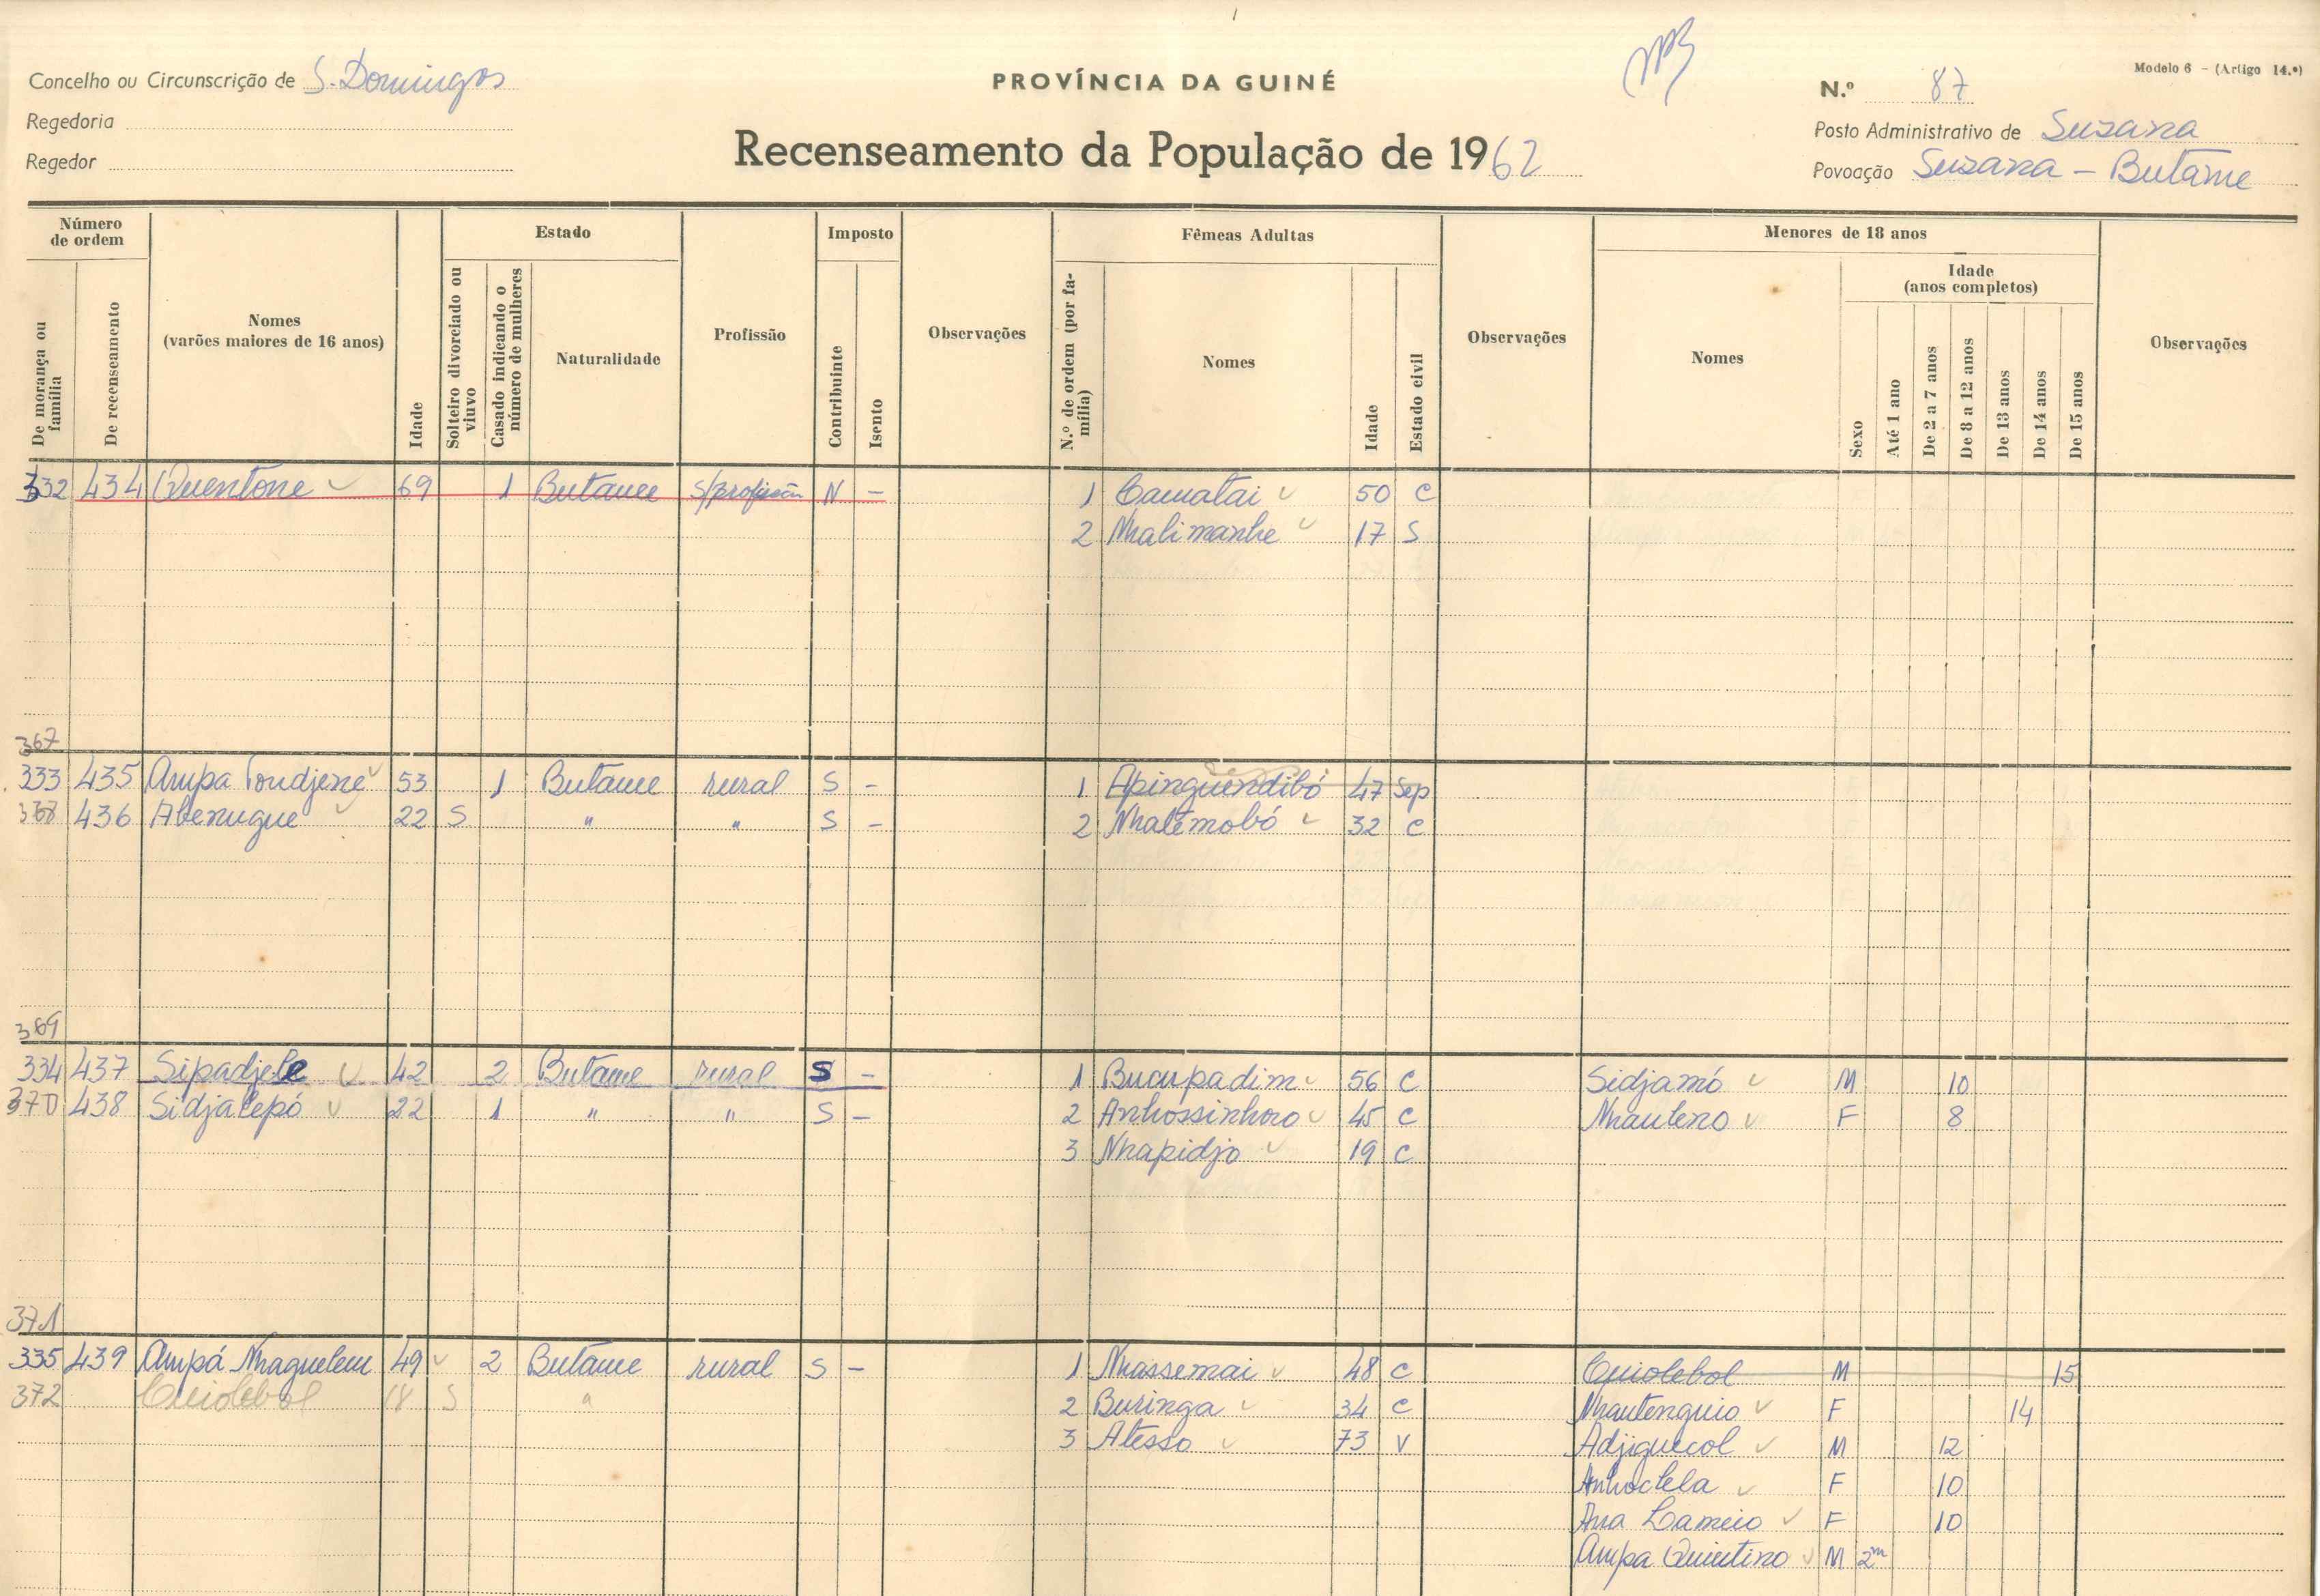 Concelho ou Circunscrição de S. Domingos
Regedoria
Regedor
PROVÍNCIA DA GUINÉ
Recenseamento da População de 1962
Modelo 6 - (Artigo 14.º)
N.º 87
Posto Administrativo de Suzana
Povoação Suzana - Butame
Número de ordem
De morança ou família
De recenseamento
Nomes (varões maiores de 16 anos)
Idade
Estado
Solteiro divorciado ou viuvo
Casado indicando o número de mulheres
Naturalidade
Profissão
Imposto
Contribuinte
Isento
Observações
Fêmeas Adultas
N.º de ordem (por família)
Nomes
Idade
Estado civil
Observações
Menores de 18 anos
Nomes
Sexo
Idade (anos completos)
Até 1 ano
De 2 a 7 anos
De 8 a 12 anos
De 13 anos
De 14 anos
De 15 anos
Observações
332 434 Quentone 69 1 Butame s/profissão N - 1 Camatai 50 C
2 Nhalimanhe 17 S
367
333 435 Ampa Toudjene 53 1 Butame rural S - 1 Apinguendibó 47 Sep
368 436 Abenugue 22 S " " S - 2 Nhalemobó 32 C
369
334 437 Sipadjele 42 2 Butame rural S - 1 Bucupadim 56 C Sidjamó M 10
370 438 Sidjalepó 22 1 " " S - 2 Anhossinhoro 45 C Nhauteno F 8
3 Nhapidjo 19 C
371
335 439 Ampá Nhaguelem 49 2 Butame rural S - 1 Nhassemai 48 C Quiolebol M 15
372 Quiolebol 18 S " 2 Buringa 34 C Nhautenguio F 14
3 Atesso 73 V Adjiguecol M 12
Anhoctela F 10
Ana Lameio F 10
Ampa Quintino M 2m